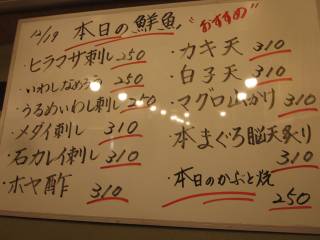 12/19 本日の鮮魚 "おすすめ"
・ヒラマサ刺し 250
・いわしなめろう 250
・うるめいわし刺し 250
・メダイ刺し 310
・石カレイ刺し 310
・ホヤ酢 310
・カキ天 310
・白子天 310
・マグロ山かけ 310
・本まぐろ脳天炙り 310
・本日のかぶと焼 250